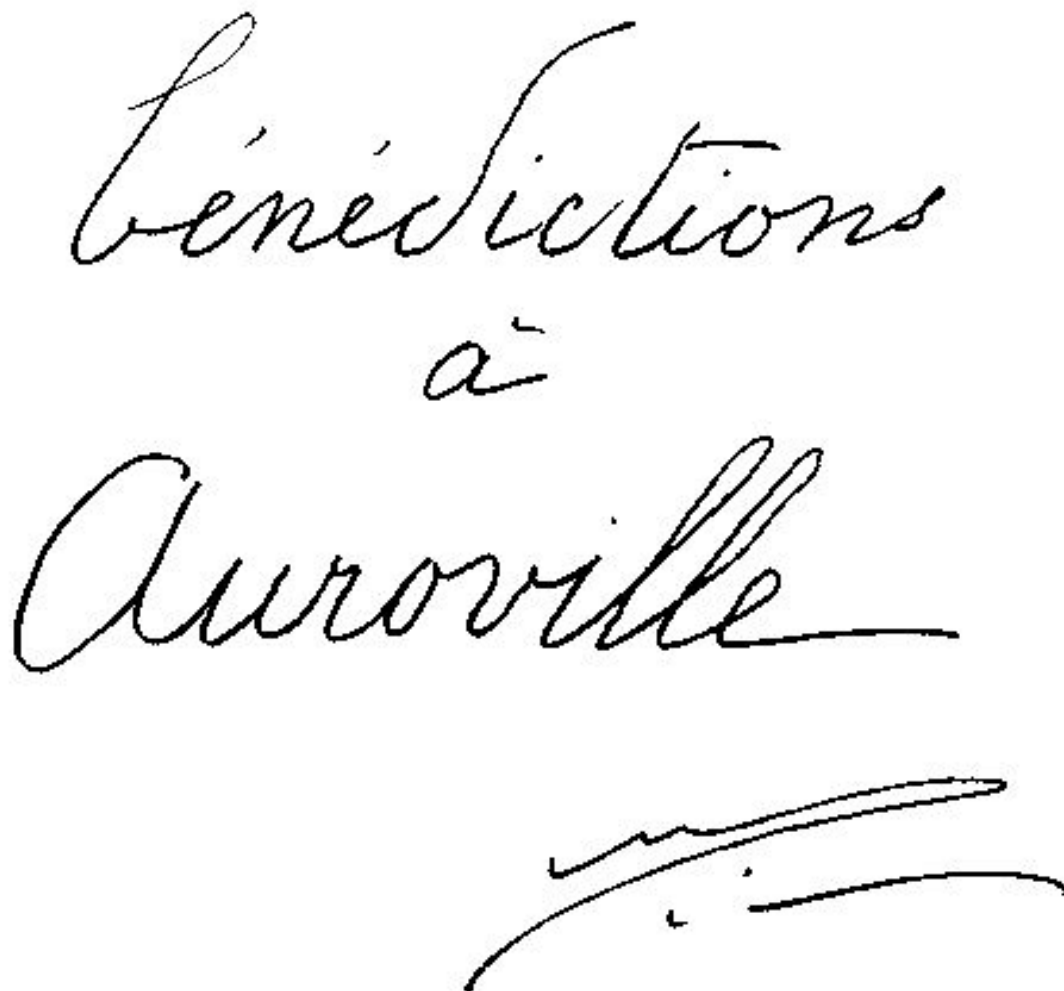 bénédictions
à
Auroville